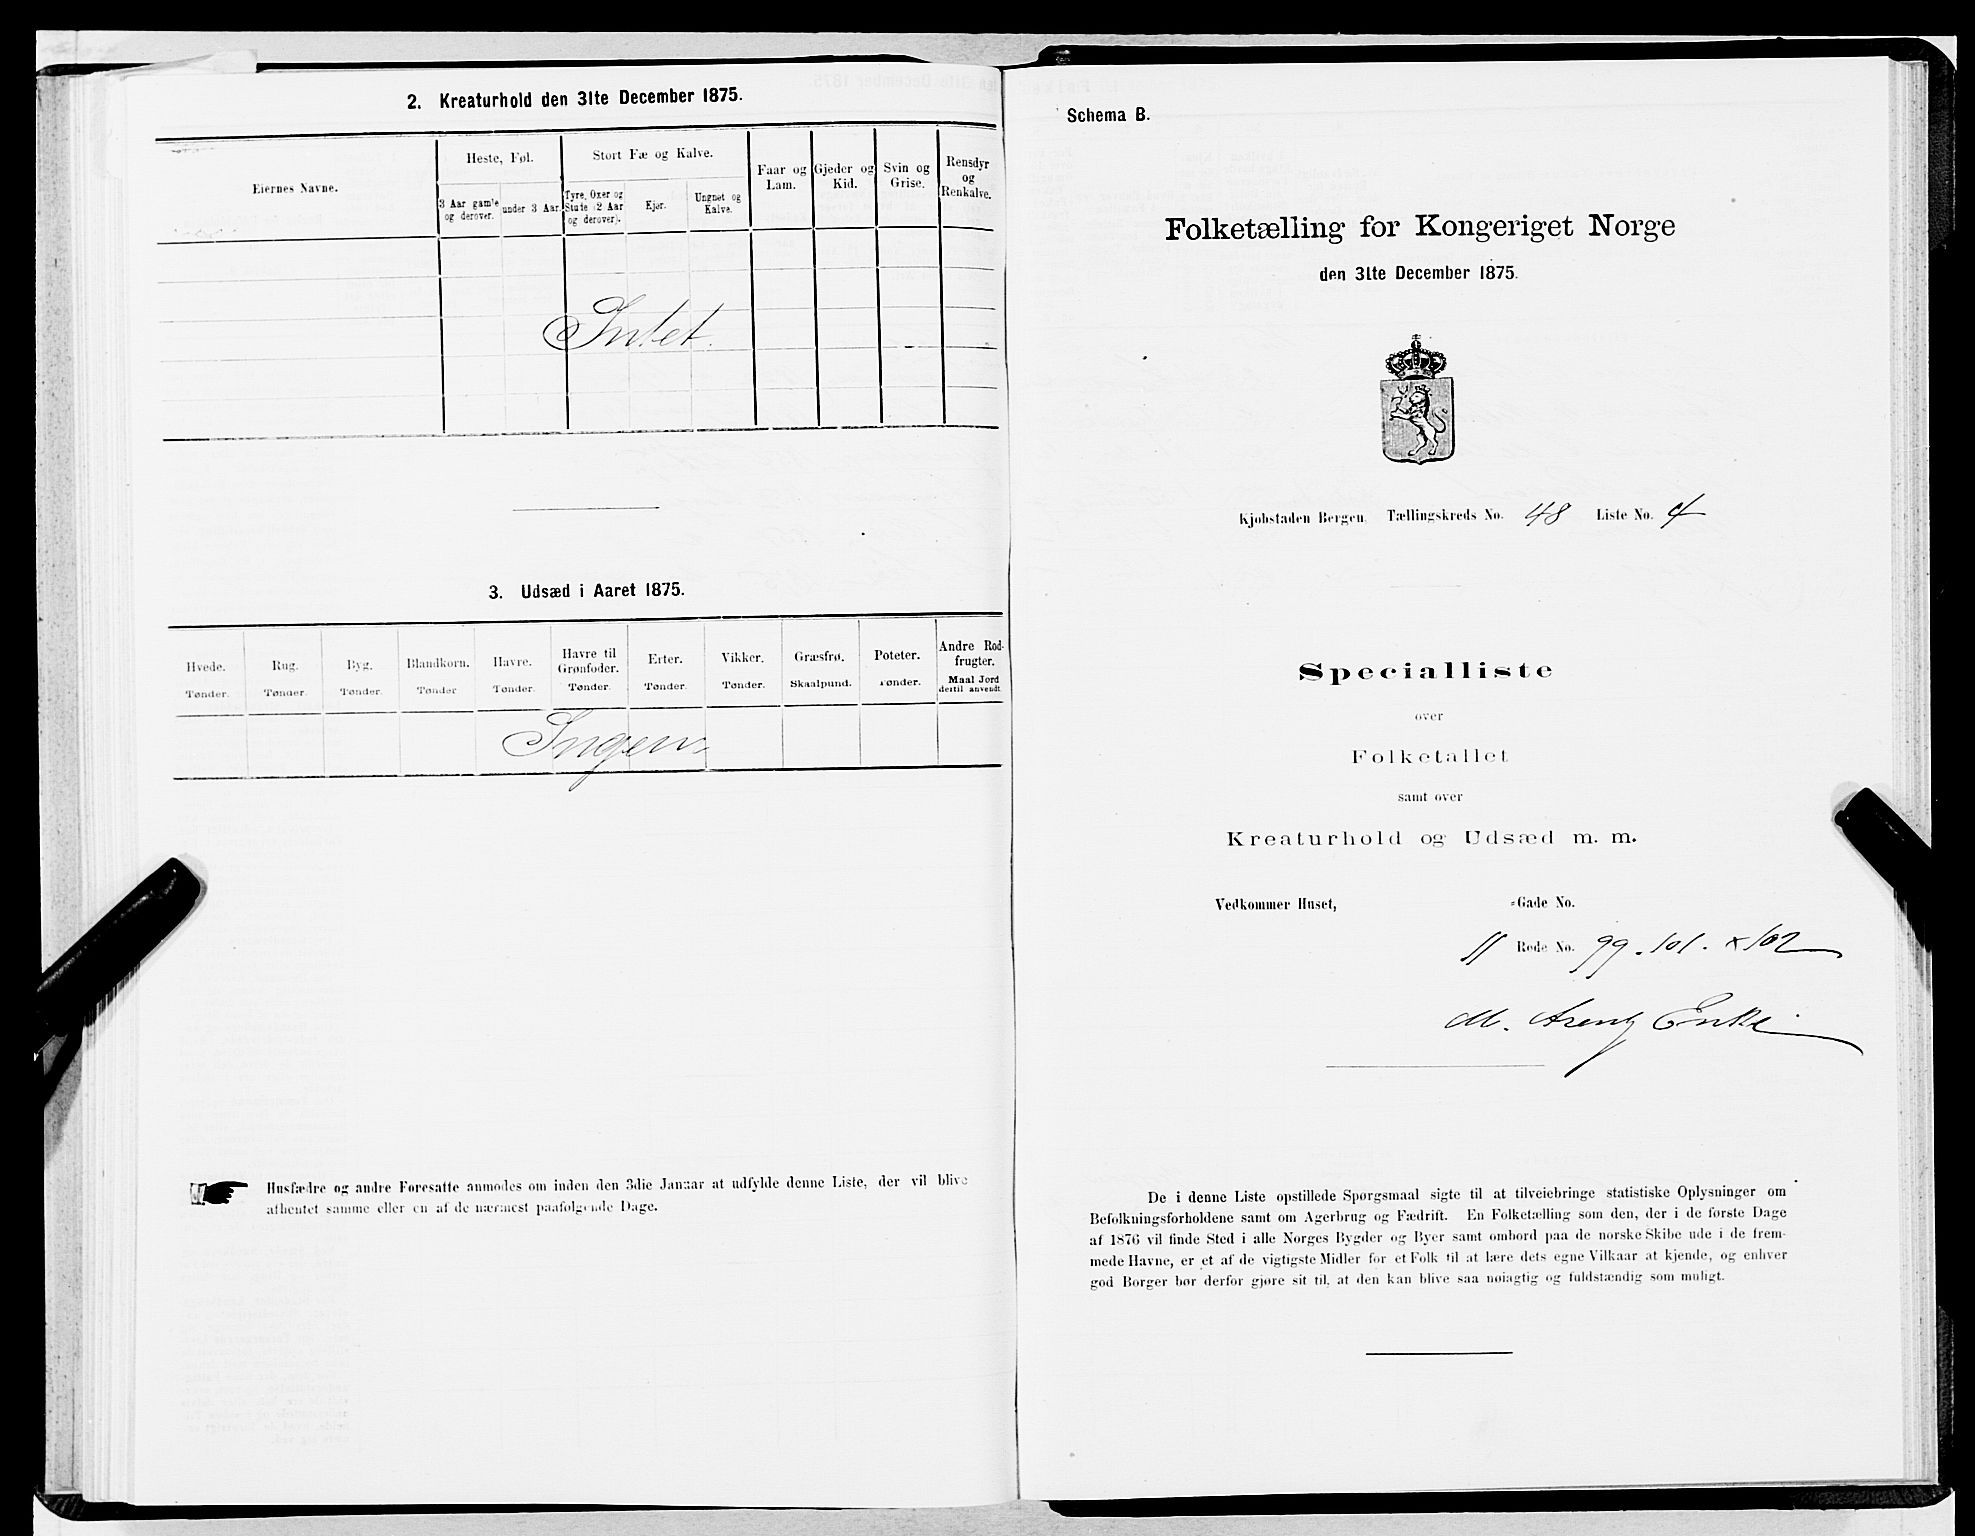 2. Kreaturhold den 31te December 1875.
Eiernes Navne.
Heste, Føl.
3 Aar gamle og derover.
under 3 Aar.
Stort Fæ og Kalve.
Tyre, Oxer og Stude (2 Aar og derover).
Kjør.
Ungnet og Kalve.
Faar og Lam.
Gjeder og Kid.
Svin og Grise.
Rensdyr og Renkalve.
Intet.
3. Udsæd i Aaret 1875.
Hvede. Tønder.
Rug. Tønder.
Byg. Tønder.
Blandkorn. Tønder
Havre. Tønder.
Havre til Grønfoder. Tønder.
Erter. Tønder.
Vikker. Tønder.
Græsfrø. Skaalpund.
Poteter. Tønder.
Andre Rodfrugter. Maal Jord dertil anvendt.
Ingen
Husfædre og andre Foresatte anmodes om inden den 3die Januar at udfylde denne Liste, der vil blive
afhentet samme eller en af de nærmest paafølgende Dage.
Schema B.
Folketælling for Kongeriget Norge
den 31te December 1875.
Kjøbstaden Bergen. Tællingskreds No. 48 Liste No. 4
Specialliste
over
Folketallet
samt over
Kreaturhold og Udsæd m. m.
Vedkommer Huset, =Gade No.
11 Rode No. 99. 101. × 102
M. Arentz Enke
De i denne Liste opstillede Spørgsmaal sigte til at tilveiebringe statistiske Oplysninger om
Befolkningsforholdene samt om Agerbrug og Fædrift. En Folketælling som den, der i de første Dage
af 1876 vil finde Sted i alle Norges Bygder og Byer samt ombord paa de norske Skibe ude i de frem-
mede Havne, er et af de vigtigste Midler for et Folk til at lære dets egne Vilkaar at kjende, og enhver
god Borger bør derfor gjøre sit til, at den kan blive saa nøiagtig og fuldstændig som muligt.